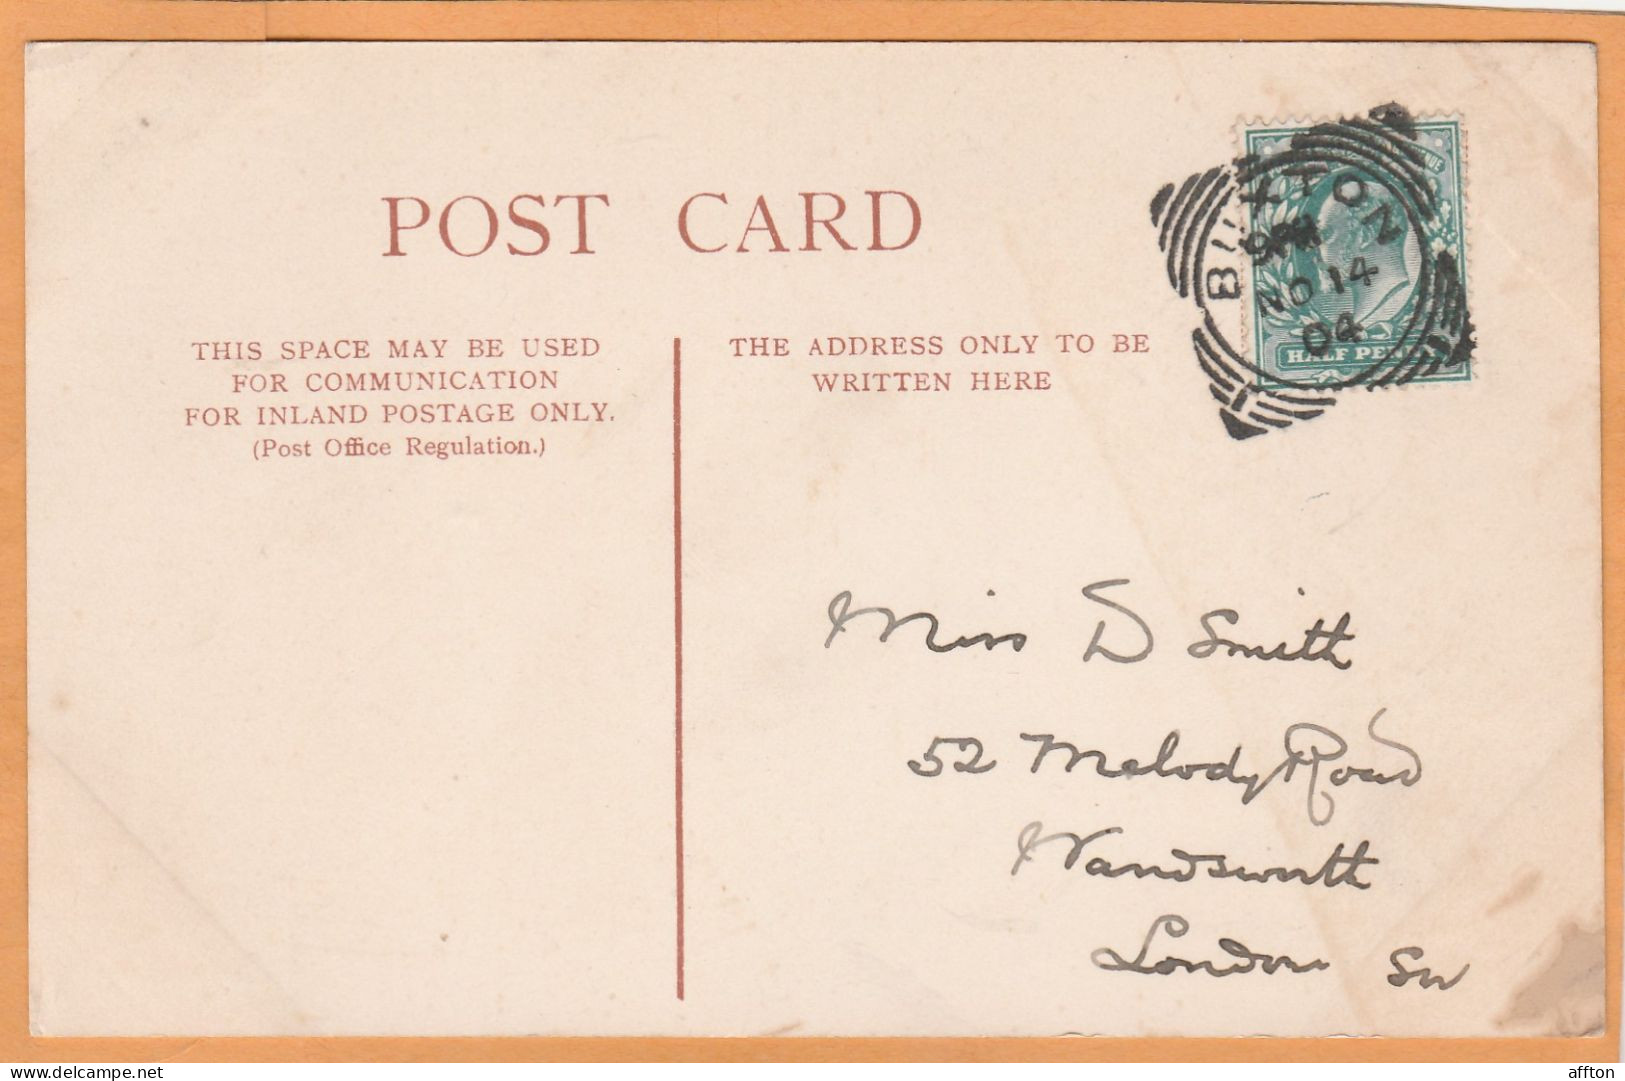 POST CARD
THIS SPACE MAY BE USED
FOR COMMUNICATION
FOR INLAND POSTAGE ONLY.
(Post Office Regulation.)
THE ADDRESS ONLY TO BE
WRITTEN HERE
BUXTON
9 PM
NO 14
04
HALF PENNY
Miss D Smith
52 Melody Road
Wandsworth
London SW
delcampe.net
affton